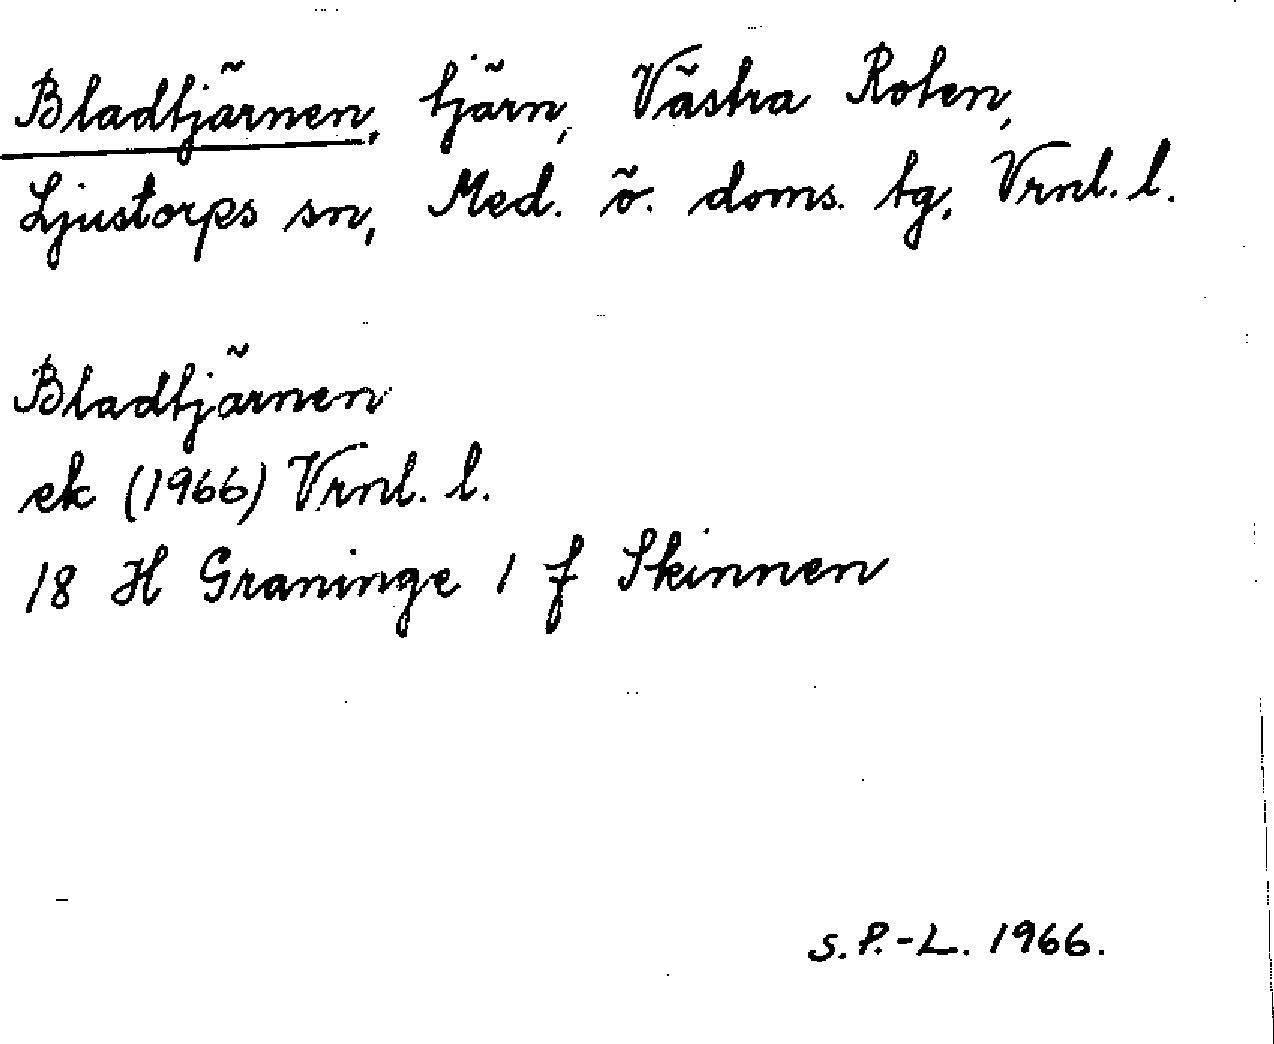 Bladtjärnen, tjärn, Västra Roten,
Ljustorps sn, Med. ö. doms. tg, Vrnl. l.
Bladtjärnen
ek (1966) Vrnl. l.
18 H Graninge 1 f Skinnen
S. P.-L. 1966.